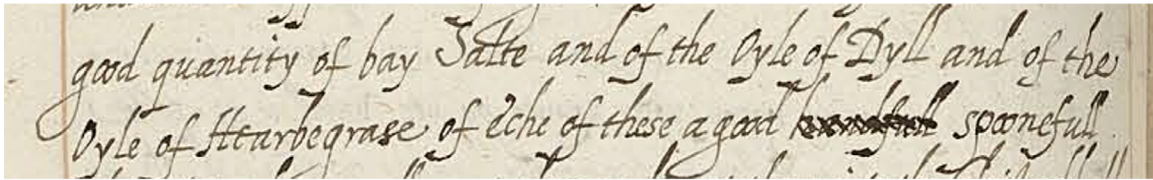 good quantity of bay Salte and of the Oyle of Dyll and of the
Oyle of Hearbegrase of eche of these a good handfull spoonefull